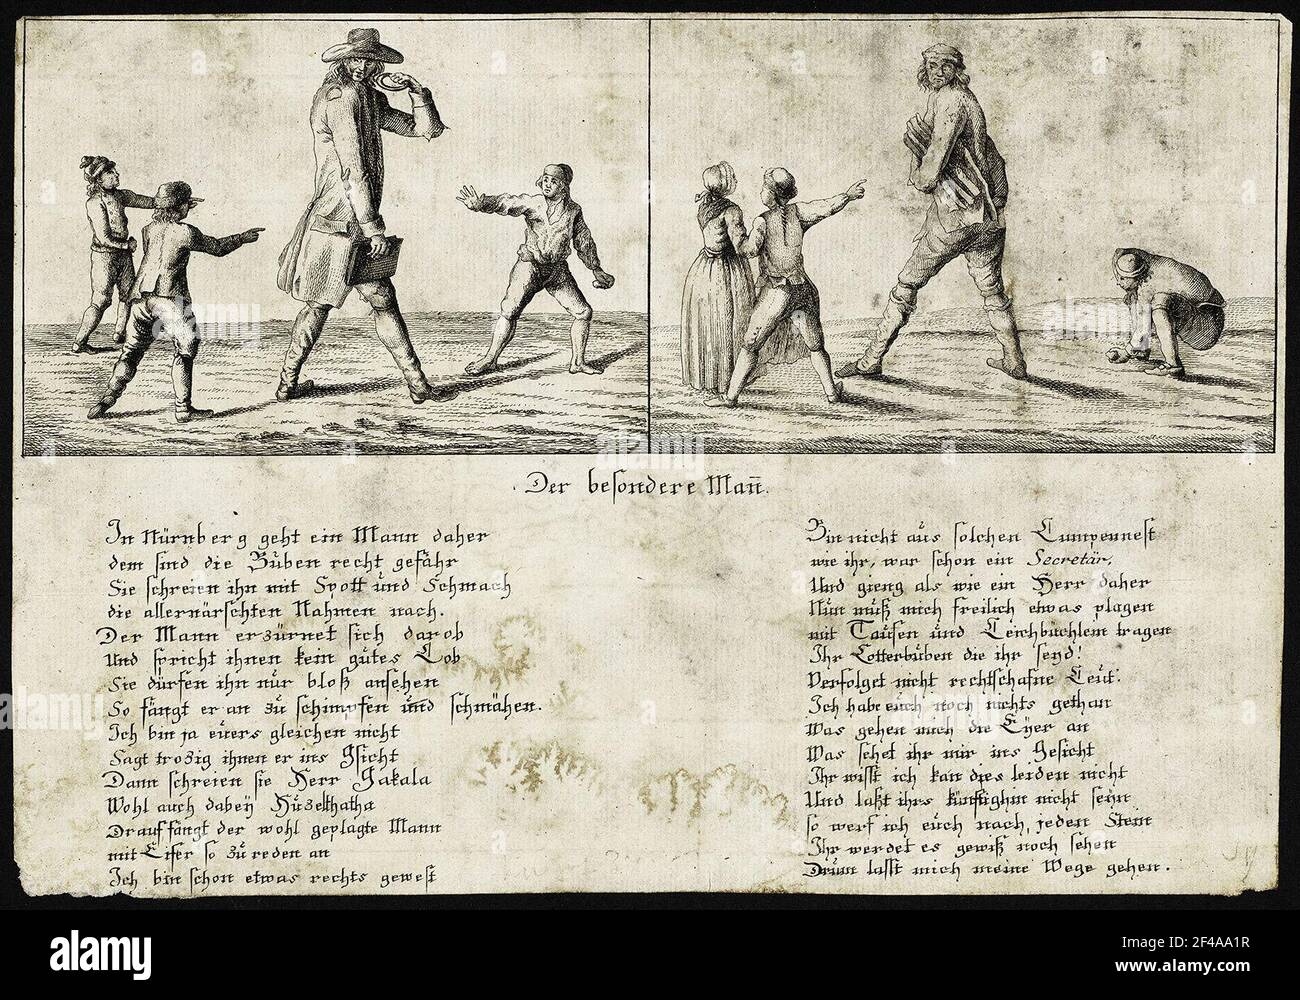 Der besondere Mañ.
In Nürnberg geht ein Mann daher
dem sind die Buben recht gefähr
Sie schreien ihn mit Spott und Schmach
die allernärschten Nahmen nach.
Der Mann erzürnet sich darob
Und spricht ihnen kein gutes Lob
Sie dürfen ihn nur bloß ansehen
So fängt er an zu schimpfen und schmähen.
Ich bin ja euers gleichen nicht
Sagt trozig ihnen er ins Gsicht
Dann schreien sie Herr Gakala
Wohl auch dabeÿ
Drauf fängt der wohl geplagte Mann
mit Eifer so zu reden an
Ich bin schon etwas rechts gewest
Bin nicht aus solchen Lumpennest
wie ihr, war schon ein Secretär,
Und gieng als wie ein Herr daher
Nun muß mich freilich etwas plagen
mit Taufen und Leichbüchlein tragen
Ihr Lotterbuben die ihr seyd!
Verfolget nicht rechtschafne Leut!
Ich hab euch noch nichts gethan
Was gehen mich die Eÿer an
Was sehet ihr mir ins Gesicht
Ihr wisst ich kan dies leiden nicht
Und laßt ihrs künftighin nicht seÿn
so werf ich euch nach jeden Stein
Ihr werdet es gewiß noch sehen
Drum lasst mich meine Wege gehen.
alamy
Image ID: 2F4AA1R
www.alamy.com